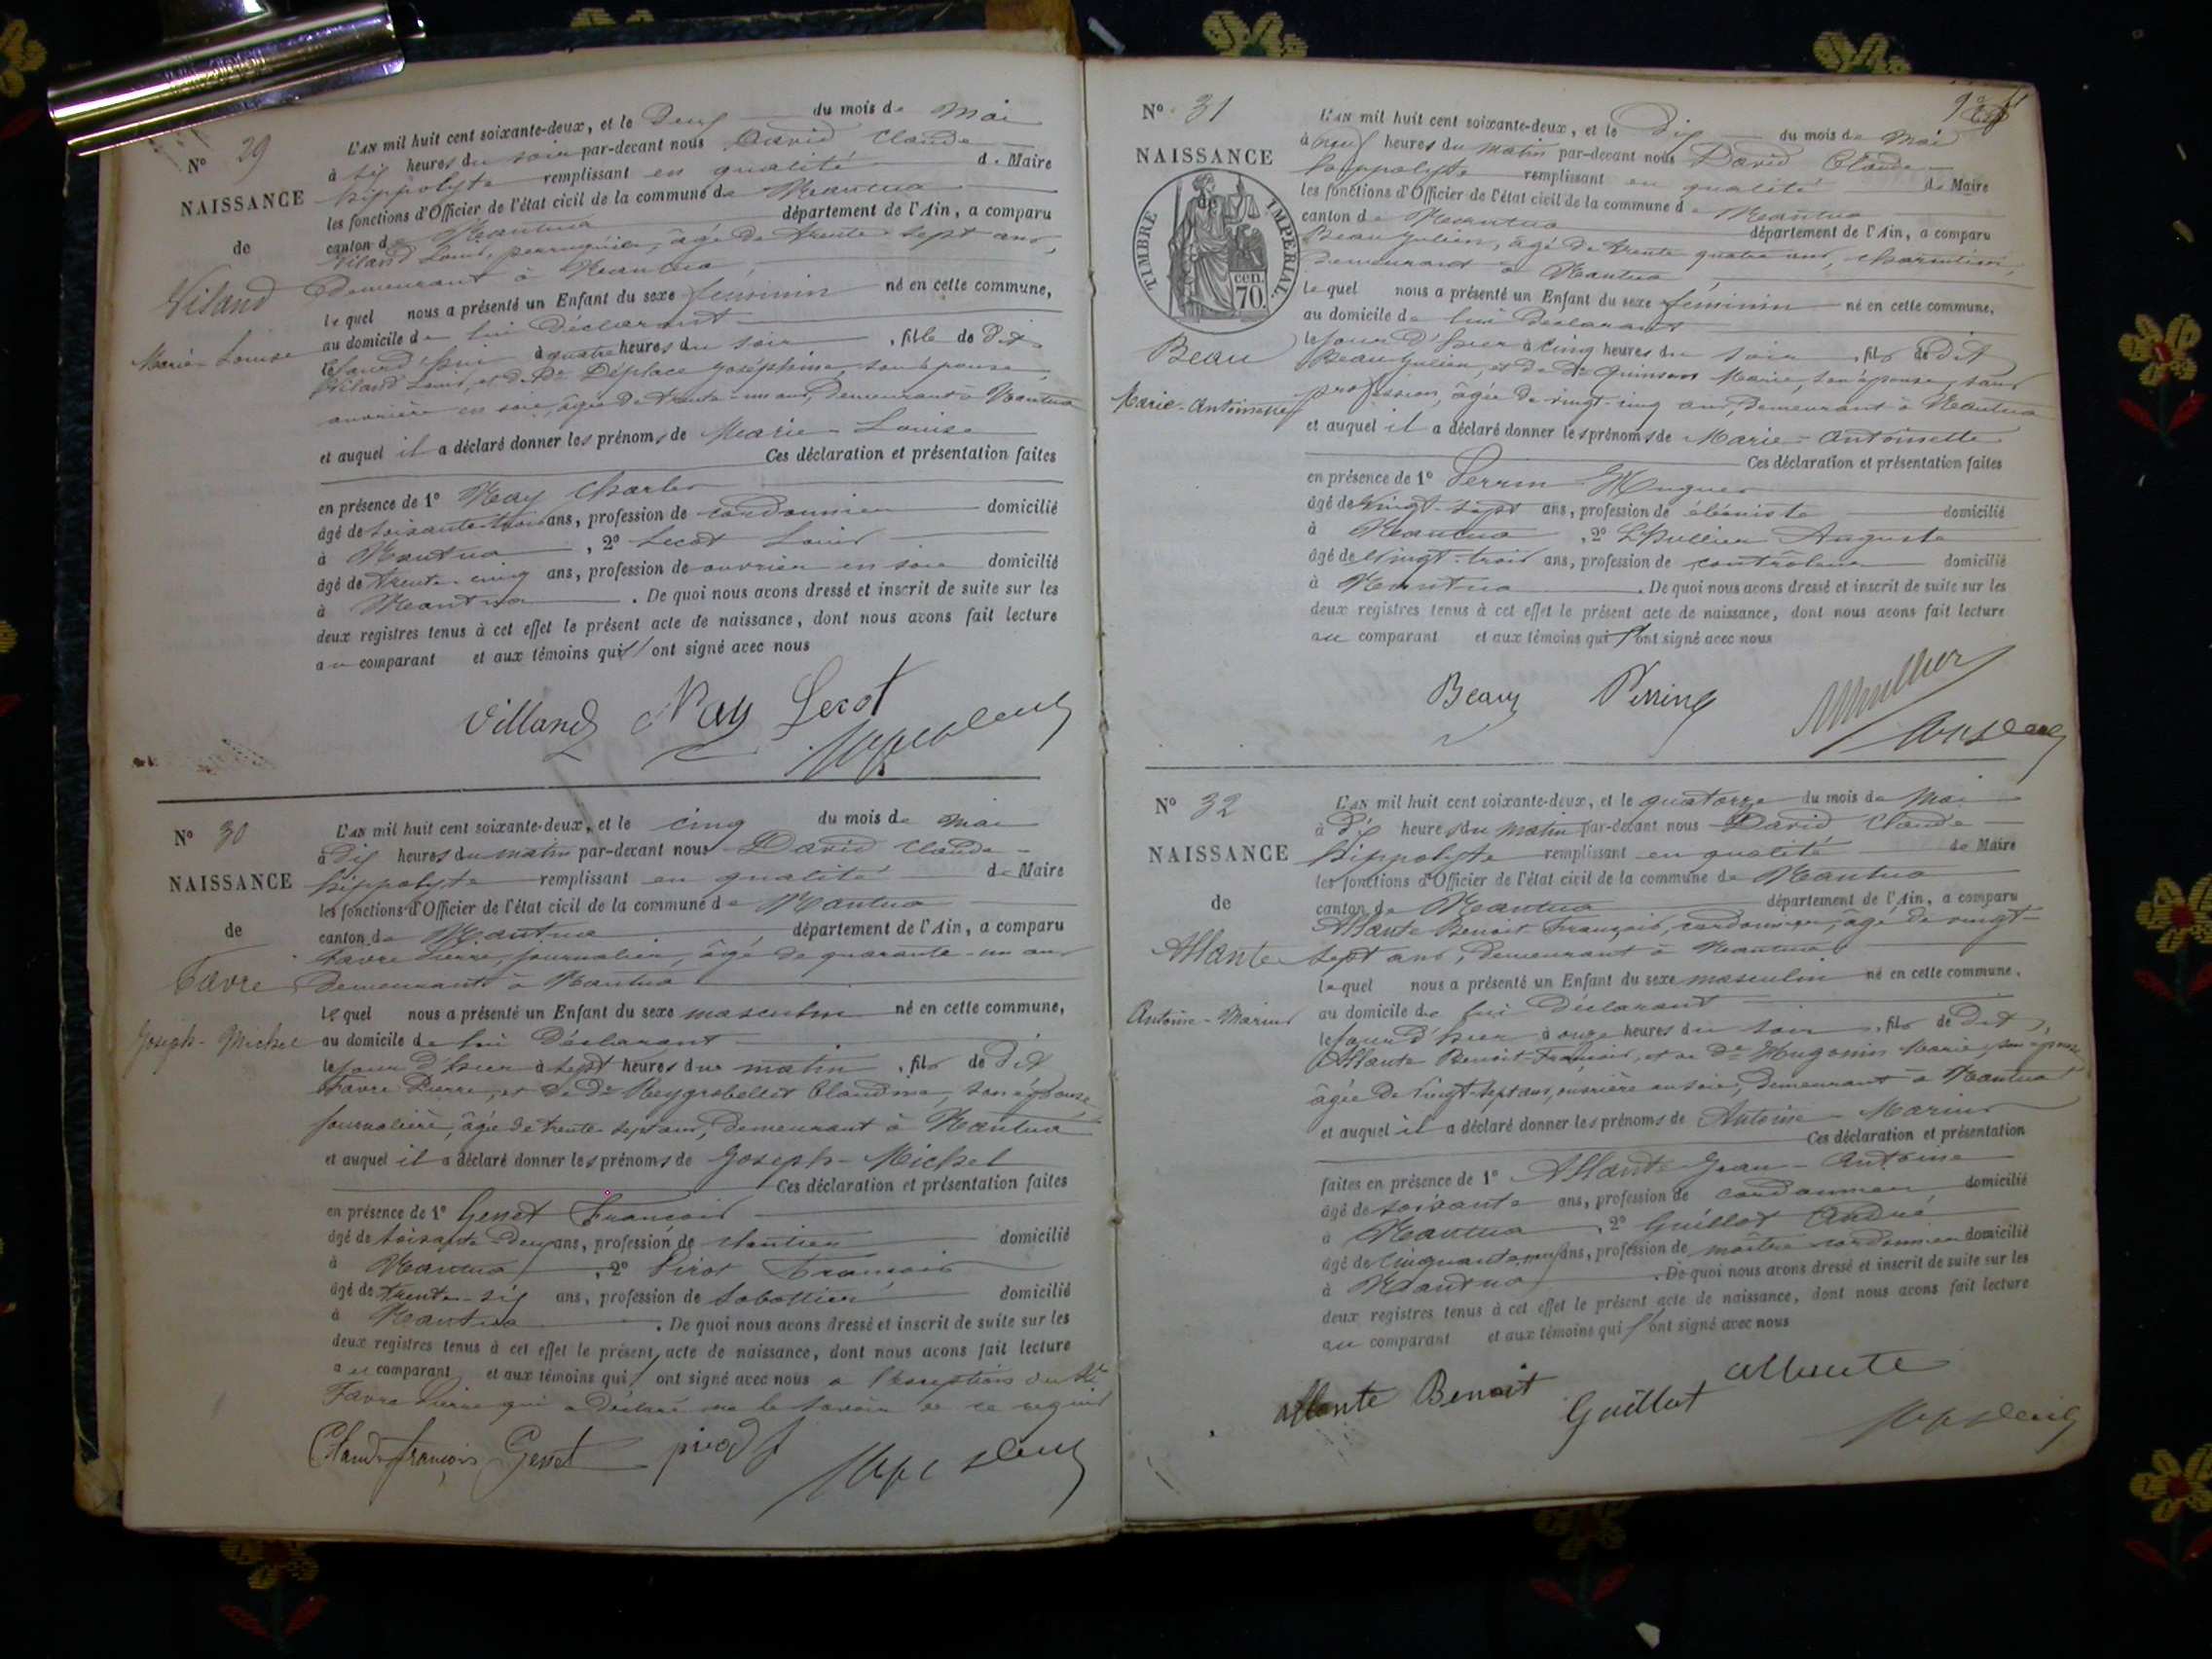 N° 29
NAISSANCE
de
Viland
Marie-Louise
L'AN mil huit cent soixante-deux, et le Deux du mois de Mai
à six heures du soir par-devant nous David Claude
hippolyte remplissant en qualité de Maire
les fonctions d'Officier de l'état civil de la commune de Mantua
canton de Mantua département de l'Ain, a comparu
Viland Louis, perruquier, âgé de trente-sept ans,
Demeurant à Mantua
lequel nous a présenté un Enfant du sexe féminin né en cette commune,
au domicile de lui Déclarant
le jourd'hui à quatre heures du soir, fille de Dit
Viland Louis, et de De Déplace Joséphine, son épouse,
ouvrière en soie, âgée de trente-un ans, Demeurant à Mantua
et auquel il a déclaré donner les prénoms de Marie-Louise
Ces déclaration et présentation faites
en présence de 1° May Charles
âgé de soixante-trois ans, profession de cordonnier domicilié
à Mantua, 2° Lecot Louis
âgé de trente-cinq ans, profession de ouvrier en soie domicilié
à Mantua. De quoi nous avons dressé et inscrit de suite sur les
deux registres tenus à cet effet le présent acte de naissance, dont nous avons fait lecture
au comparant et aux témoins qui ont signé avec nous
Villand May Lecot
N° 30
NAISSANCE
de
Favre
Joseph-Michel
L'AN mil huit cent soixante-deux, et le cinq du mois de Mai
à dix heures du matin par-devant nous David Claude
hippolyte remplissant en qualité de Maire
les fonctions d'Officier de l'état civil de la commune de Mantua
canton de Mantua département de l'Ain, a comparu
Favre Pierre, journalier, âgé de quarante-un ans
Demeurant à Mantua
lequel nous a présenté un Enfant du sexe masculin né en cette commune,
au domicile de lui Déclarant
le jour d'hier à sept heures du matin, fils de Dit
Favre Pierre, et de De Claudine, son épouse,
journalière, âgée de trente-sept ans, Demeurant à Mantua
et auquel il a déclaré donner les prénoms de Joseph-Michel
Ces déclaration et présentation faites
en présence de 1° Genet François
âgé de soixante-deux ans, profession de domicilié
à Mantua, 2° Pirot François
âgé de trente-six ans, profession de Sabottier domicilié
à Mantua. De quoi nous avons dressé et inscrit de suite sur les
deux registres tenus à cet effet le présent acte de naissance, dont nous avons fait lecture
au comparant et aux témoins qui ont signé avec nous à l'exception du
Favre Pierre qui a Déclaré ne le savoir de ce requis
Claude françois Genet pirod f
N° 31
NAISSANCE
TIMBRE IMPERIAL
70 cen.
Beau
Marie-Antoinette
L'AN mil huit cent soixante-deux, et le Dix du mois de Mai
à neuf heures du matin par-devant nous David Claude
hippolyte remplissant en qualité de Maire
les fonctions d'Officier de l'état civil de la commune de Mantua
canton de Mantua département de l'Ain, a comparu
Beau Julien, âgé de trente quatre ans, charcutier,
Demeurant à Mantua
lequel nous a présenté un Enfant du sexe féminin né en cette commune,
au domicile de lui Déclarant
le jour d'hier à cinq heures du soir, fils de Dit
Beau Julien, et de De Quinson Marie, son épouse, sans
profession, âgée de vingt-cinq ans, Demeurant à Mantua
et auquel il a déclaré donner les prénoms de Marie-Antoinette
Ces déclaration et présentation faites
en présence de 1° Perrin Hugues
âgé de vingt-sept ans, profession de ébéniste domicilié
à Mantua, 2° Auguste
âgé de vingt-trois ans, profession de contrôleur domicilié
à Mantua. De quoi nous avons dressé et inscrit de suite sur les
deux registres tenus à cet effet le présent acte de naissance, dont nous avons fait lecture
au comparant et aux témoins qui ont signé avec nous
Beau Perrin
N° 32
NAISSANCE
de
Allante
Antoine-Marius
L'AN mil huit cent soixante-deux, et le quatorze du mois de Mai
à dix heures du matin par-devant nous David Claude
hippolyte remplissant en qualité de Maire
les fonctions d'Officier de l'état civil de la commune de Mantua
canton de Mantua département de l'Ain, a comparu
Allante Benoit François, cordonnier, âgé de vingt-
sept ans, Demeurant à Mantua
lequel nous a présenté un Enfant du sexe masculin né en cette commune,
au domicile de lui Déclarant
le jour d'hier à onze heures du soir, fils de Dit
Allante Benoit-François, et de De Hugonin Marie, son épouse
âgée de vingt-sept ans, ouvrière en soie, Demeurant à Mantua
et auquel il a déclaré donner les prénoms de Antoine-Marius
Ces déclaration et présentation
faites en présence de 1° Allante Jean-Antoine
âgé de soixante ans, profession de cordonnier domicilié
à Mantua, 2° Guillot André
âgé de cinquante ans, profession de maître cordonnier domicilié
à Mantua. De quoi nous avons dressé et inscrit de suite sur les
deux registres tenus à cet effet le présent acte de naissance, dont nous avons fait lecture
au comparant et aux témoins qui ont signé avec nous
allante Benoit Guillot allante